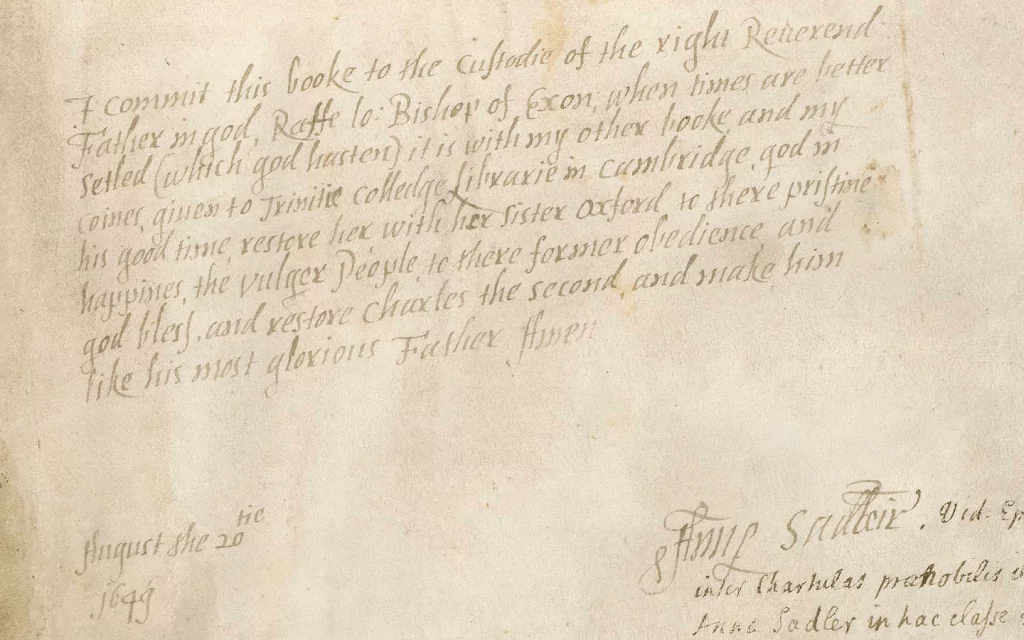 I commit this booke to the Custodie of the right Reuerend
Father in god, Raffe lo: Bishop of Exon, when times are better
setled (which god hasten) it is with my other booke, and my
coines, giuen to Trinitie colledge Librarie in Cambridge, god in
his good time, restore her with her sister Oxford to there pristine
happines, the Vulger People to there former obedience, and
god bless, and restore Charles the second, and make him
like his most glorious Father Amen
August the 20tie
1649
Anne Sadleir. Vid. Ep
inter Chartulas prænobilis
Annæ Sadler in hac classe